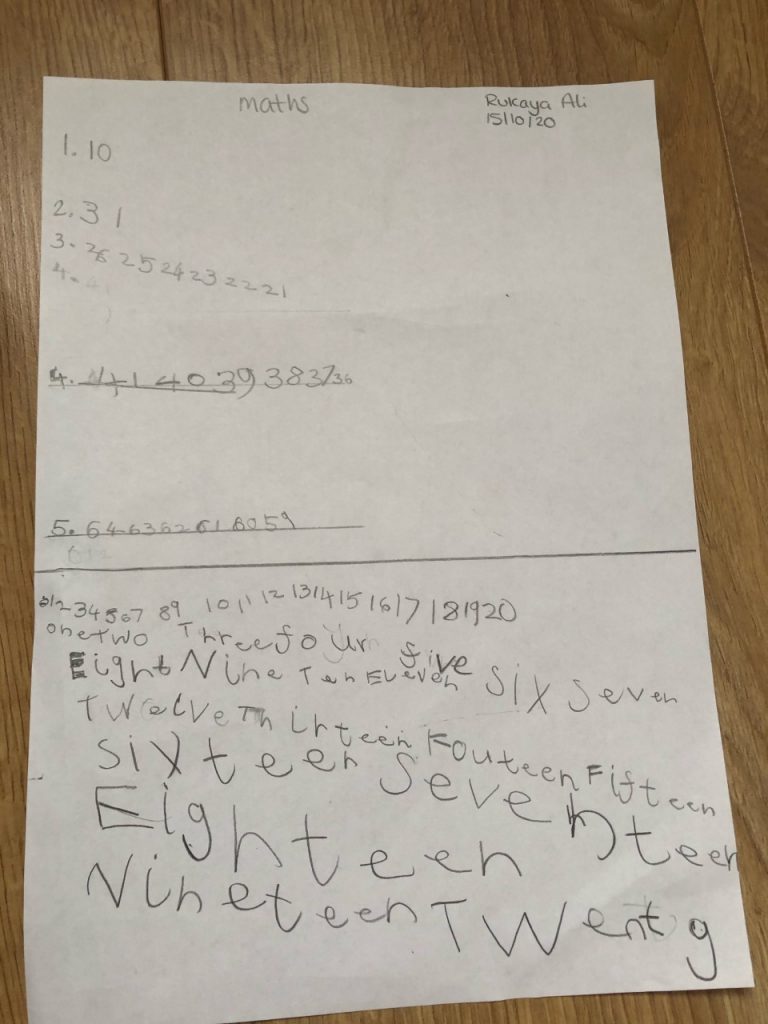 maths
Rukaya Ali
15/10/20
1. 10
2. 31
3. 26 25 24 23 22 21
4.
4. 41 40 39 38 37 36
5. 64 63 62 61 60 59
0 1 2 3 4 5 6 7 8 9 10 11 12 13 14 15 16 17 18 19 20
one Two Three four five
six seven
Eight Nine Ten Eleven
Twelve Thirteen Fouteen Fifteen
sixteen Seventeen
Eighteen
Nineteen Twenty